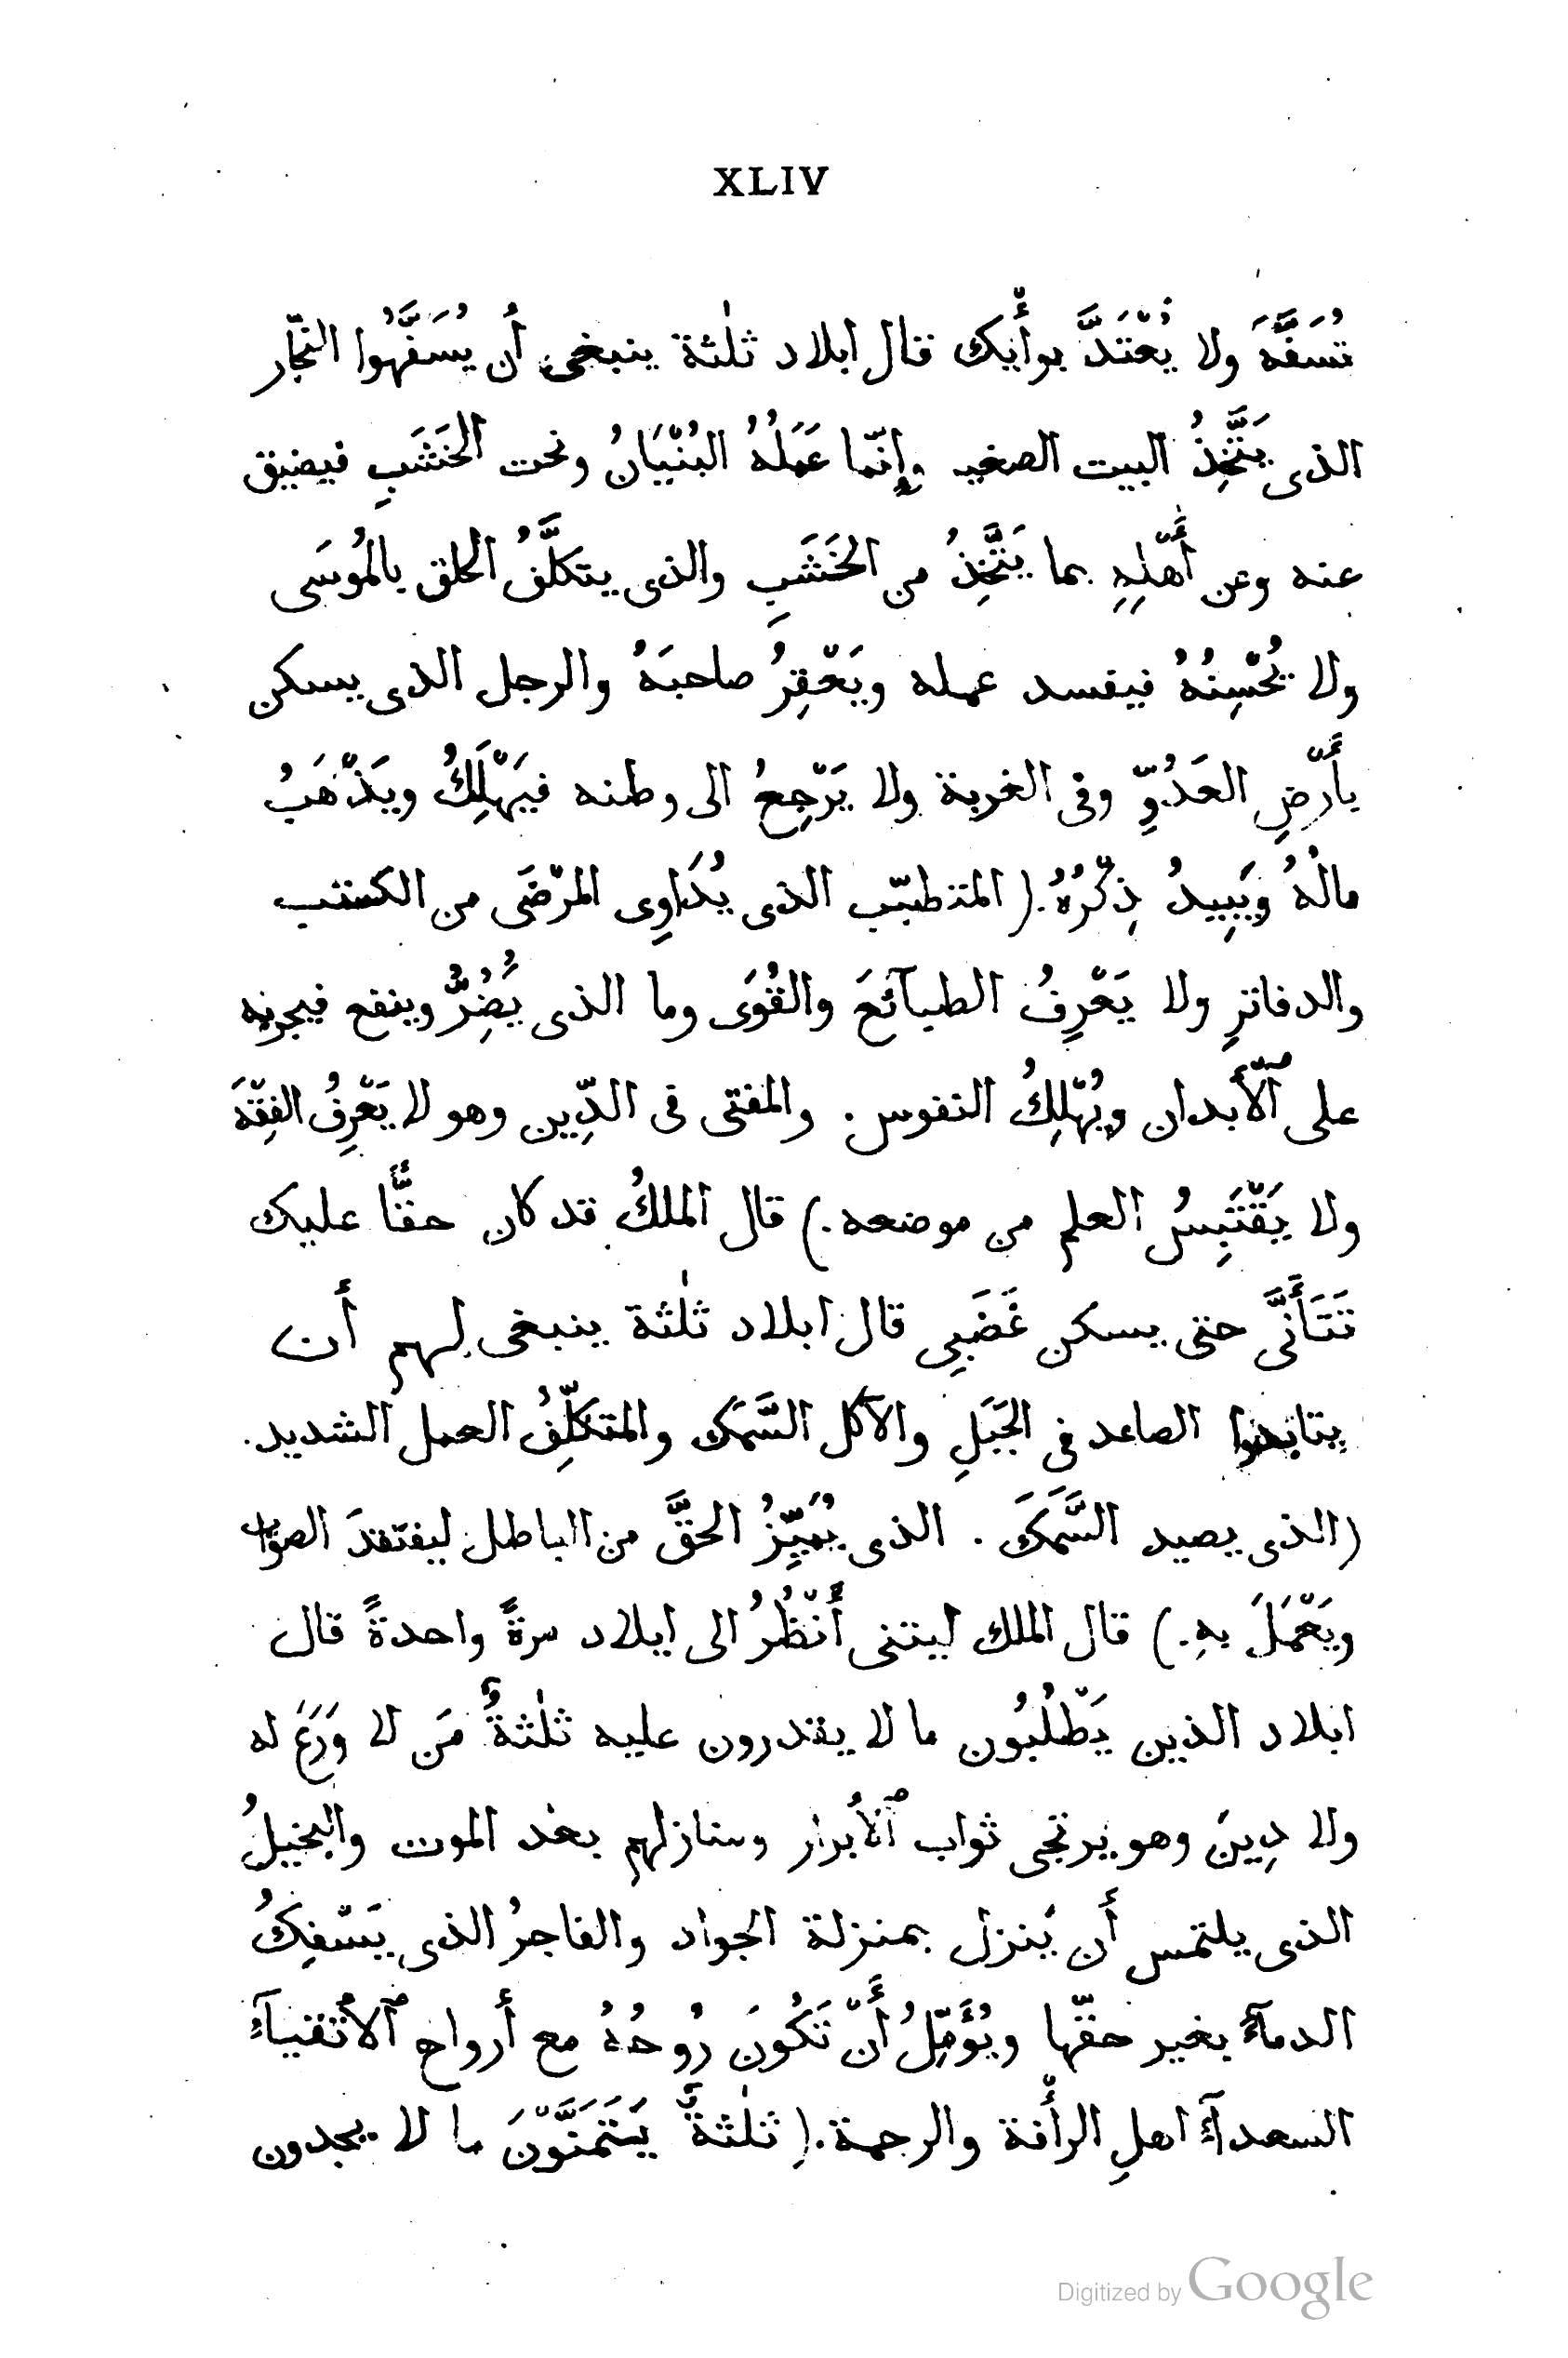 XLIV
تُسَفَّهَ ولا يُعْتَدَّ برأْيك قال ابلاد ثلٰثة ينبغى أُن يُسَفَّهُوا النجّار
الذى يَتَّخِذُ البيت الصغير وإنّما عَمَلُهُ البُنْيَانُ ونحت الخَشَبِ فيضيق
عنه وعن أَهْلِهِ بما يَتَّخِذُ من الخَشَبِ والذى يتكلَّفُ الحلق بالمُوسَى
ولا يُحْسِنُهُ فيفسد عمله ويَعْقِرُ صاحبَهُ والرجل الذى يسكن
بأَرْضِ العَدُوِّ وفى الغربة ولا يَرْجِعُ الى وطنه فيَهْلِكُ ويَذْهَبُ
مالُهُ ويَبِيدُ ذِكْرُهُ.( المتطبّب الذى يُدَاوِى المرْضَى من الكتب
والدفاترِ ولا يَعْرِفُ الطبآئعَ والقُوَى وما الذى يُضِرُّ وينفع فيجربه
على ٱلْأَبدان ويُهْلِكُ النفوس. والمفتى فى الدِّين وهو لا يَعْرِفُ الفِقْهَ
ولا يَقْتَبِسُ العلم من موضعه.) قال الملكُ قد كان حقًّا عليك
تَتَأَنَّى حتى يسكن غَضَبِى قال ابلاد ثلٰثة ينبغى لهم أن
الصاعد فى الجَبَلِ والآكل السَّمَك والمتكلِّفُ العمل الشديد.
(الذى يصيد السَّمَكَ. الذى يُمَيِّزُ الحقَّ من الباطل ليفتقدَ الصواب
ويَعْمَلَ بهِ.) قال الملك ليتنى أَنْظُرُ الى ايلاد مرةً واحدةً قال
ابلاد الذين يَطْلُبُون ما لا يقدرون عليه ثلٰثةٌ مَن لا وَرَعَ له
ولا دِينَ وهو يرتجى ثواب ٱلأَبرار ومنازلهم بعد الموت والبخيلُ
الذى يلتمس أن يَنزل بمنزلة الجواد والفاجرُ الذى يَسْفِكُ
الدمآءَ بغير حقّها ويُؤَمِّلُ أَنْ تَكُونَ رُوحُهُ مع أرواح ٱلأَتْقيآءِ
السعدآءِ اهلِ الرأْفة والرحمة.( ثلٰثةٌ يَتَمَنَّوْنَ ما لا يجدون
Digitized by Google